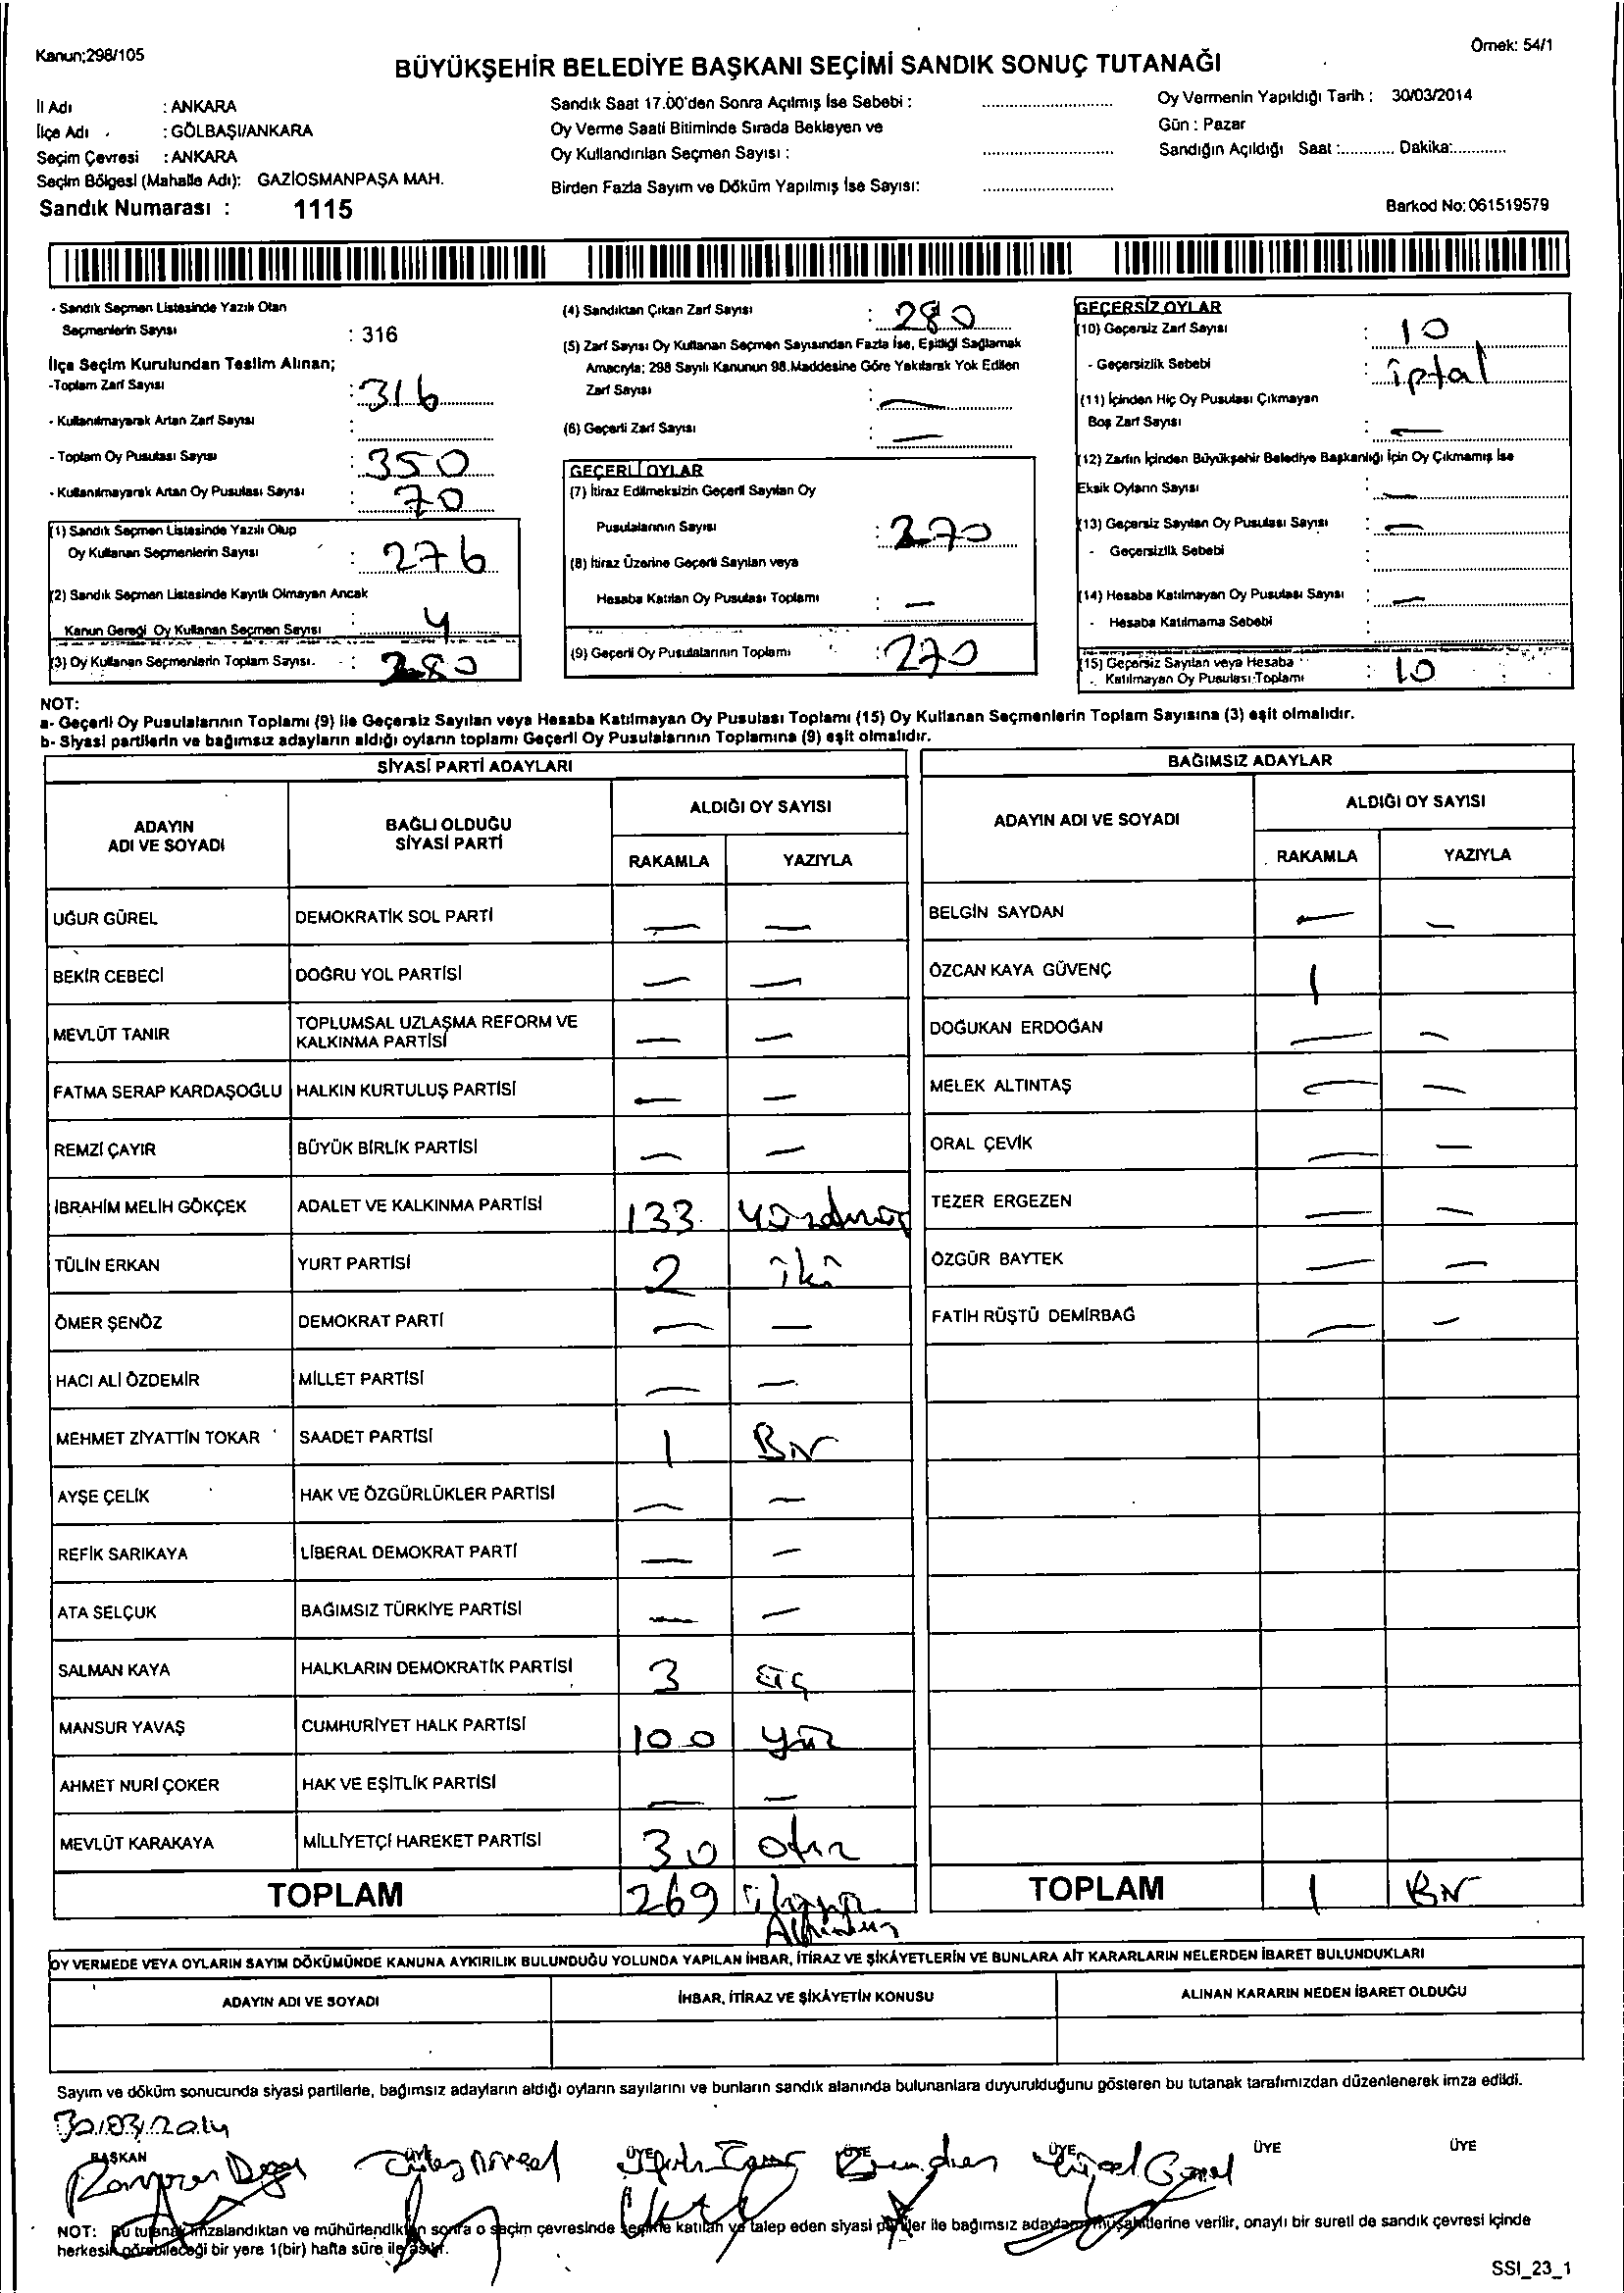 Kanun;298/105
Örnek: 54/1
BÜYÜKŞEHİR BELEDİYE BAŞKANI SEÇİMİ SANDIK SONUÇ TUTANAĞI
İl Adı : ANKARA
İlçe Adı : GÖLBAŞI/ANKARA
Seçim Çevresi : ANKARA
Seçim Bölgesi (Mahalle Adı): GAZİOSMANPAŞA MAH.
Sandık Numarası : 1115
Sandık Saat 17.00'den Sonra Açılmış İse Sebebi :
Oy Verme Saati Bitiminde Sırada Bekleyen ve
Oy Kullandırılan Seçmen Sayısı :
Birden Fazla Sayım ve Döküm Yapılmış İse Sayısı:
Oy Vermenin Yapıldığı Tarih : 30/03/2014
Gün : Pazar
Sandığın Açıldığı Saat :............ Dakika:............
Barkod No: 061519579
- Sandık Seçmen Listesinde Yazılı Olan
Seçmenlerin Sayısı : 316
İlçe Seçim Kurulundan Teslim Alınan;
-Toplam Zarf Sayısı : 316
- Kullanılmayarak Artan Zarf Sayısı :
- Toplam Oy Pusulası Sayısı : 350
- Kullanılmayarak Artan Oy Pusulası Sayısı : 70
(1) Sandık Seçmen Listesinde Yazılı Olup
Oy Kullanan Seçmenlerin Sayısı : 276
(2) Sandık Seçmen Listesinde Kayıtlı Olmayan Ancak
Kanun Gereği Oy Kullanan Seçmen Sayısı : 4
(3) Oy Kullanan Seçmenlerin Toplam Sayısı. : 280
(4) Sandıktan Çıkan Zarf Sayısı : 280
(5) Zarf Sayısı Oy Kullanan Seçmen Sayısından Fazla İse, Eşitliği Sağlamak
Amacıyla; 298 Sayılı Kanunun 98.Maddesine Göre Yakılarak Yok Edilen
Zarf Sayısı : —
(6) Geçerli Zarf Sayısı : —
GEÇERLİ OYLAR
(7) İtiraz Edilmeksizin Geçerli Sayılan Oy
Pusulalarının Sayısı : 270
(8) İtiraz Üzerine Geçerli Sayılan veya
Hesaba Katılan Oy Pusulası Toplamı : —
(9) Geçerli Oy Pusulalarının Toplamı : 270
GEÇERSİZ OYLAR
(10) Geçersiz Zarf Sayısı : 10
- Geçersizlik Sebebi : iptal
(11) İçinden Hiç Oy Pusulası Çıkmayan
Boş Zarf Sayısı : —
(12) Zarfın İçinden Büyükşehir Belediye Başkanlığı İçin Oy Çıkmamış İse
Eksik Oyların Sayısı : —
(13) Geçersiz Sayılan Oy Pusulası Sayısı : —
- Geçersizlik Sebebi :
(14) Hesaba Katılmayan Oy Pusulası Sayısı : —
- Hesaba Katılmama Sebebi
(15) Geçersiz Sayılan veya Hesaba
Katılmayan Oy Pusulası Toplamı : 10
NOT:
a- Geçerli Oy Pusulalarının Toplamı (9) ile Geçersiz Sayılan veya Hesaba Katılmayan Oy Pusulası Toplamı (15) Oy Kullanan Seçmenlerin Toplam Sayısına (3) eşit olmalıdır.
b- Siyasi partilerin ve bağımsız adayların aldığı oyların toplamı Geçerli Oy Pusulalarının Toplamına (9) eşit olmalıdır.
SİYASİ PARTİ ADAYLARI
ADAYIN ADI VE SOYADI BAĞLI OLDUĞU SİYASİ PARTİ ALDIĞI OY SAYISI
RAKAMLA YAZIYLA
UĞUR GÜREL DEMOKRATİK SOL PARTİ — —
BEKİR CEBECİ DOĞRU YOL PARTİSİ — —
MEVLÜT TANIR TOPLUMSAL UZLAŞMA REFORM VE KALKINMA PARTİSİ — —
FATMA SERAP KARDAŞOĞLU HALKIN KURTULUŞ PARTİSİ — —
REMZİ ÇAYIR BÜYÜK BİRLİK PARTİSİ — —
İBRAHİM MELİH GÖKÇEK ADALET VE KALKINMA PARTİSİ 133
TÜLİN ERKAN YURT PARTİSİ 2 iki
ÖMER ŞENÖZ DEMOKRAT PARTİ — —
HACI ALİ ÖZDEMİR MİLLET PARTİSİ — —
MEHMET ZİYATTİN TOKAR SAADET PARTİSİ 1 Bir
AYŞE ÇELİK HAK VE ÖZGÜRLÜKLER PARTİSİ — —
REFİK SARIKAYA LİBERAL DEMOKRAT PARTİ — —
ATA SELÇUK BAĞIMSIZ TÜRKİYE PARTİSİ — —
SALMAN KAYA HALKLARIN DEMOKRATİK PARTİSİ 3 üç
MANSUR YAVAŞ CUMHURİYET HALK PARTİSİ 100 yüz
AHMET NURİ ÇOKER HAK VE EŞİTLİK PARTİSİ — —
MEVLÜT KARAKAYA MİLLİYETÇİ HAREKET PARTİSİ 30 otuz
TOPLAM 269
BAĞIMSIZ ADAYLAR
ADAYIN ADI VE SOYADI ALDIĞI OY SAYISI
RAKAMLA YAZIYLA
BELGİN SAYDAN — —
ÖZCAN KAYA GÜVENÇ 1
DOĞUKAN ERDOĞAN — —
MELEK ALTINTAŞ — —
ORAL ÇEVİK — —
TEZER ERGEZEN — —
ÖZGÜR BAYTEK — —
FATİH RÜŞTÜ DEMİRBAĞ — —
TOPLAM 1 Bir
OY VERMEDE VEYA OYLARIN SAYIM DÖKÜMÜNDE KANUNA AYKIRILIK BULUNDUĞU YOLUNDA YAPILAN İHBAR, İTİRAZ VE ŞİKÂYETLERİN VE BUNLARA AİT KARARLARIN NELERDEN İBARET BULUNDUKLARI
ADAYIN ADI VE SOYADI İHBAR, İTİRAZ VE ŞİKÂYETİN KONUSU ALINAN KARARIN NEDEN İBARET OLDUĞU
Sayım ve döküm sonucunda siyasi partilerle, bağımsız adayların aldığı oyların sayılarını ve bunların sandık alanında bulunanlara duyurulduğunu gösteren bu tutanak tarafımızdan düzenlenerek imza edildi.
30/03/2014
BAŞKAN ÜYE ÜYE ÜYE ÜYE ÜYE ÜYE
NOT: Bu tutanak imzalandıktan ve mühürlendikten sonra o seçim çevresinde seçime katılan ve talep eden siyasi partiler ile bağımsız adayların müşahitlerine verilir, onaylı bir sureti de sandık çevresi içinde
herkesin görebileceği bir yere 1(bir) hafta süre ile asılır.
SSI_23_1